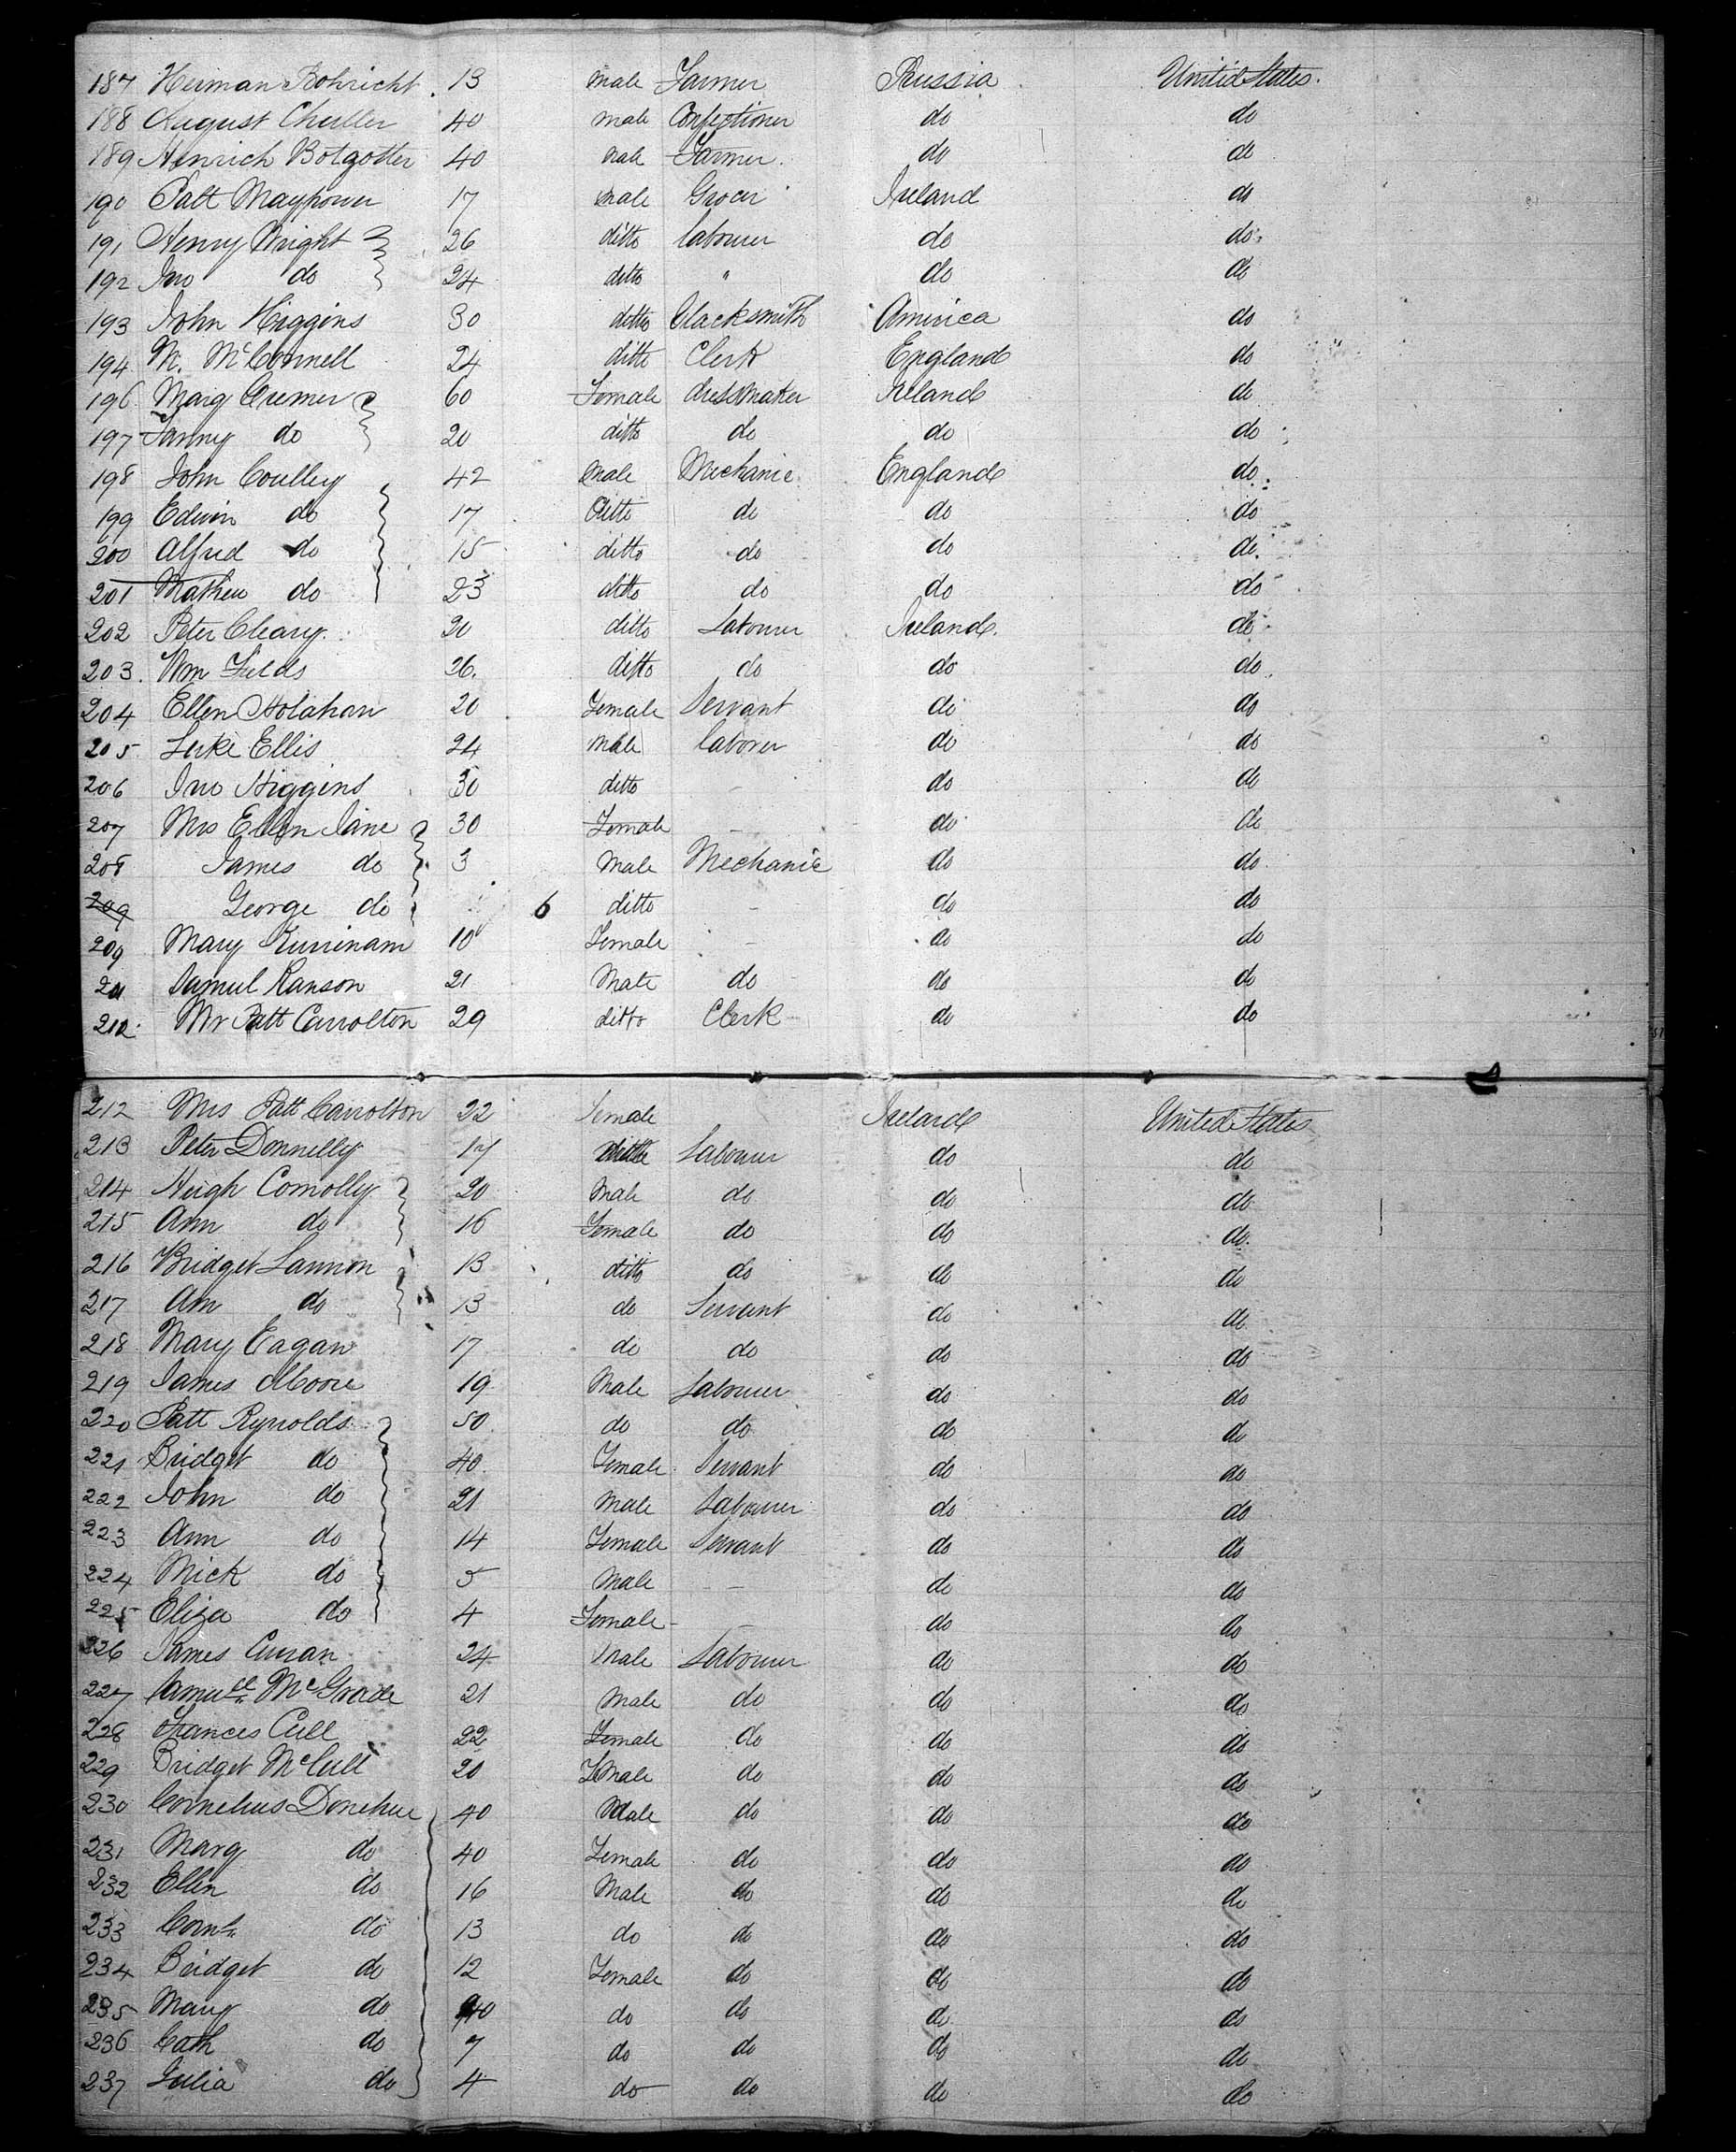 187 Herman Rohricht 13 male Farmer Russia United States.
188 August Chuller 40 male Confectioner do do
189 Henrich Botgotter 40 male Farmer. do do
190 Patt Maypower 17 male Grocer Ireland do
191 Henry Wright 26 ditto labourer do do
192 Jno do 24 ditto " do do
193 John Higgins 30 ditto blacksmith America do
194 M. McConnell 24 ditto Clerk England do
196 Marg Cremer 60 Female dressmaker Ireland do
197 Fanny do 20 ditto do do do
198 John Coulley 42 male Mechanic England do
199 Edwin do 17 ditto do do do
200 Alfred do 15 ditto do do do
201 Mathew do 23 ditto do do do
202 Peter Cleary 20 ditto Labourer Ireland. do
203. Wm Fields 26. ditto do do do
204 Ellen Holahan 20 Female Servant do do
205 Luke Ellis 24 male laborer do do
206 Jno Higgins 30 ditto do do
207 Mrs Ellen Jane 30 Female - do do
208 James do 3 male Mechanic do do
209 George do 6 ditto - do do
209 Mary 10 Female - do do
211 Samuel Ranson 21 Male do do do
212. Mr Patt Carrolton 29 ditto Clerk do do
212 Mrs Patt Carrolton 22 Female Ireland United States
213 Peter Donnelly 17 ditto Labourer do do
214 Hugh Connolly 20 Male do do do
215 Ann do 16 Female do do do
216 Bridget Lannon 13 ditto do do do
217 Ann do 13 do Servant do do
218 Mary Eagan 17 do do do do
219 James Moore 19 Male Labourer do do
220 Patt Rynolds 50 do do do do
221 Bridget do 40 Female Servant do do
222 John do 21 male Labourer do do
223 Ann do 14 Female Servant do do
224 Mick do 5 Male - do do
225 Eliza do 4 Female - do do
226 James Curran 24 Male Labourer do do
227 Samuell McGrade 21 Male do do do
228 Frances Cull 22 Female do do do
229 Bridget McCull 20 Female do do do
230 Cornelius Donehue 40 Male do do do
231 Marg do 40 Female do do do
232 Ellen do 16 Male do do do
233 Corns do 13 do do do do
234 Bridget do 12 Female do do do
235 Mary do do do do do
236 Cath do 7 do do do do
237 Julia do 4 do do do do